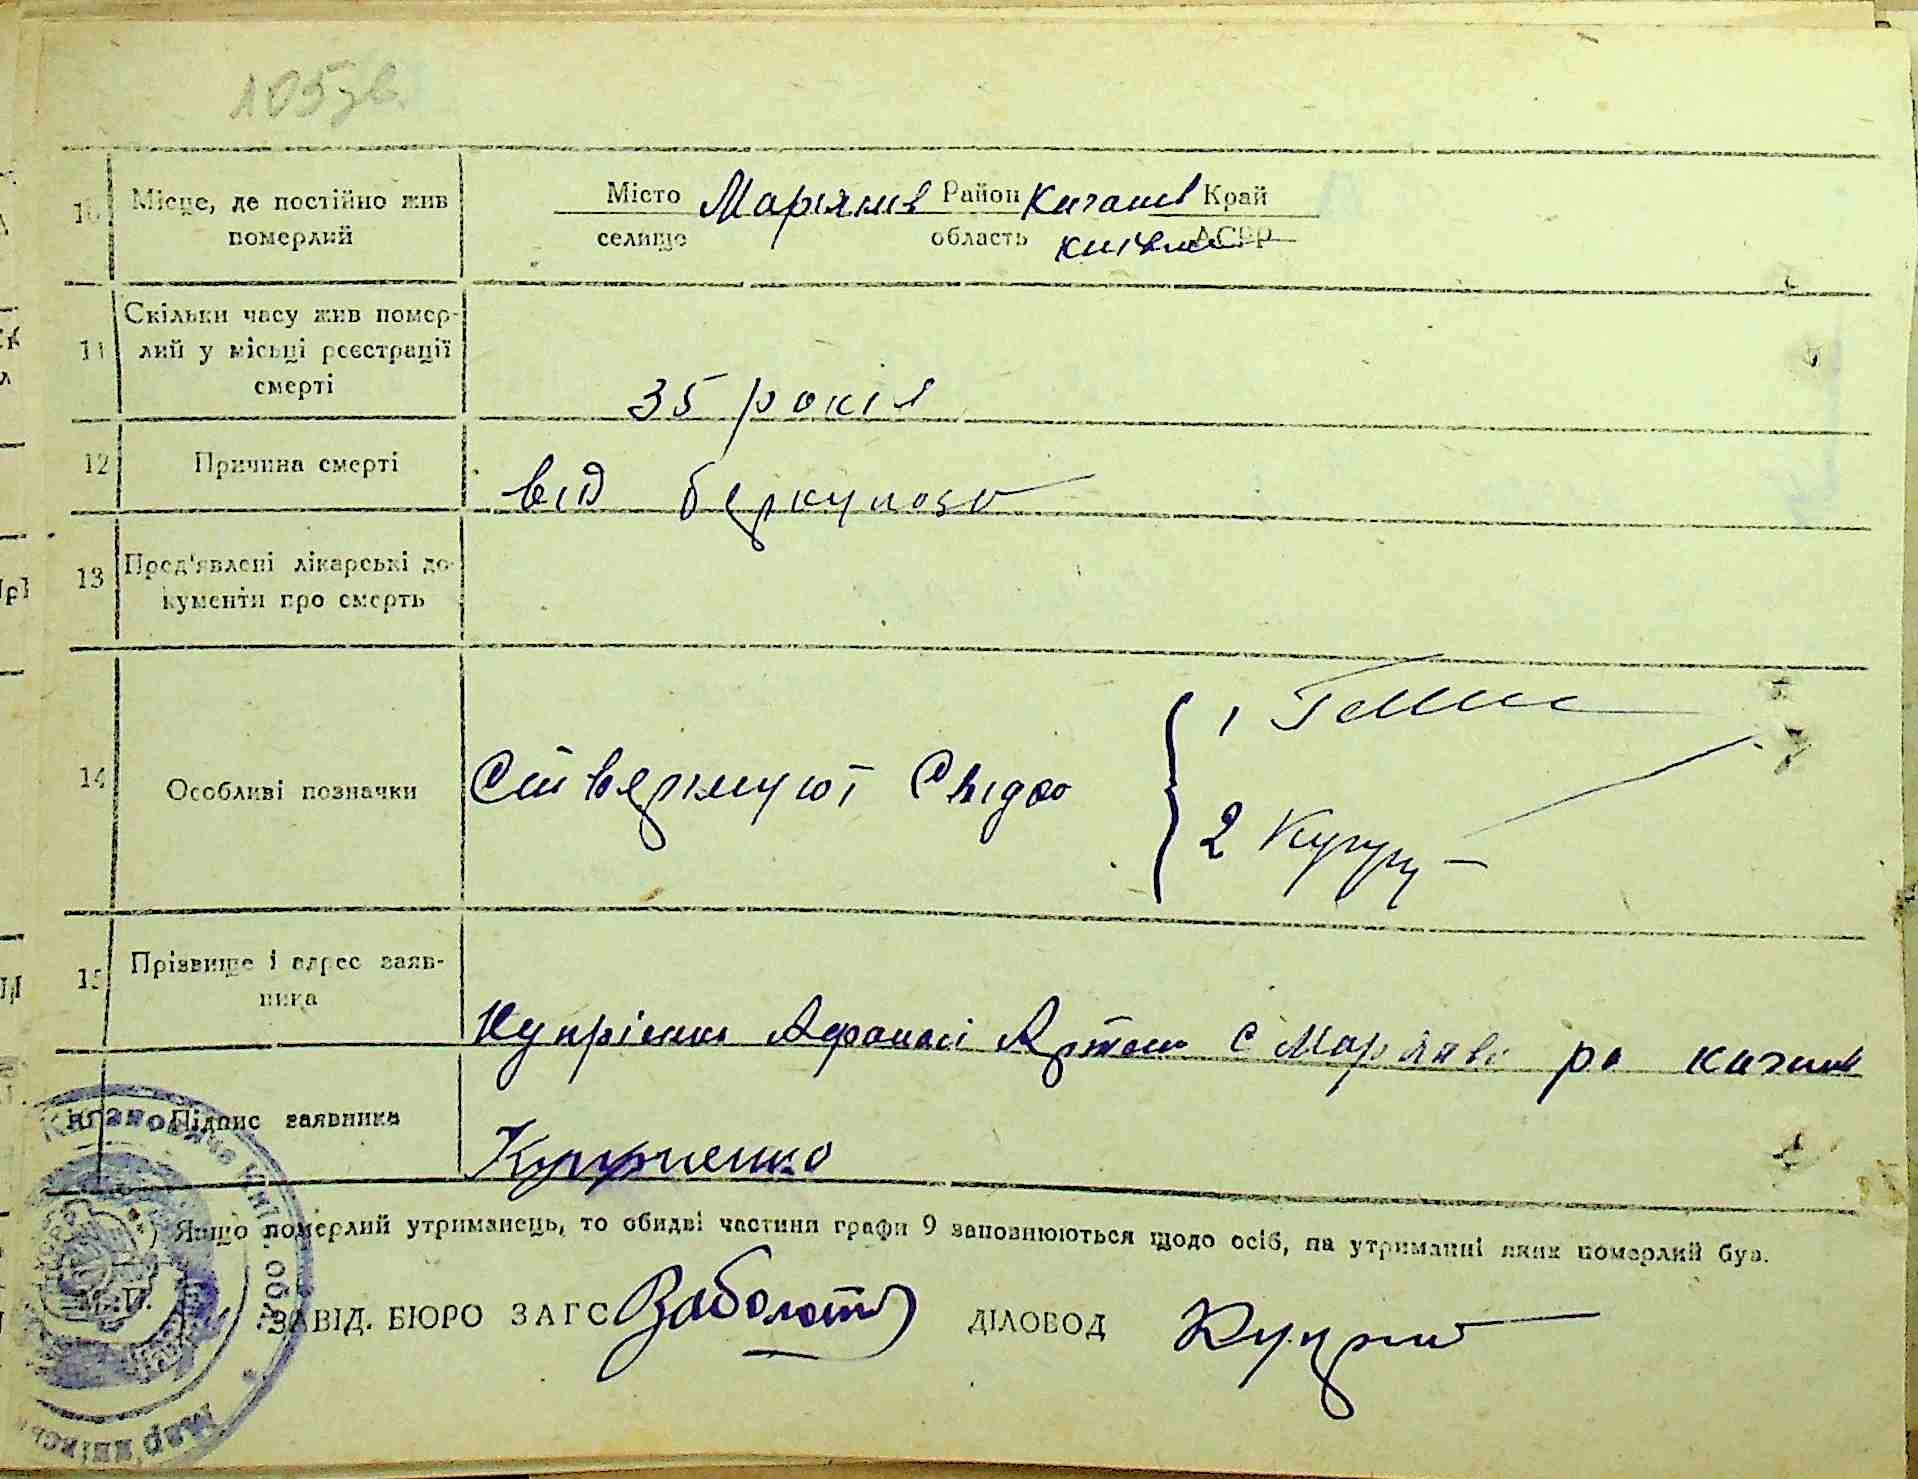 105 зв.
10 Місце, де постійно жив померлий
Місто Маріянів Район Каганов Край
селище область київськ АСРР
11 Скільки часу жив помер-
лий у місьці реєстрації
смерті
35 років
12 Причина смерті
від беркульозо
13 Пред'явлені лікарські до-
кументи про смерть
14 Особливі позначки
Ствержують Свідки
1
2
15 Прізвище і адрес заяв-
ника
Купрієнко Афанасі Артем с Марянів ра каган
Підпис заявника
Куприенко
*) Якщо померлий утриманець, то обидві частини графи 9 заповнюються щодо осіб, на утриманні яких померлий був.
М. П.
ЗАВІД. БЮРО ЗАГС Заболотн ДІЛОВОД